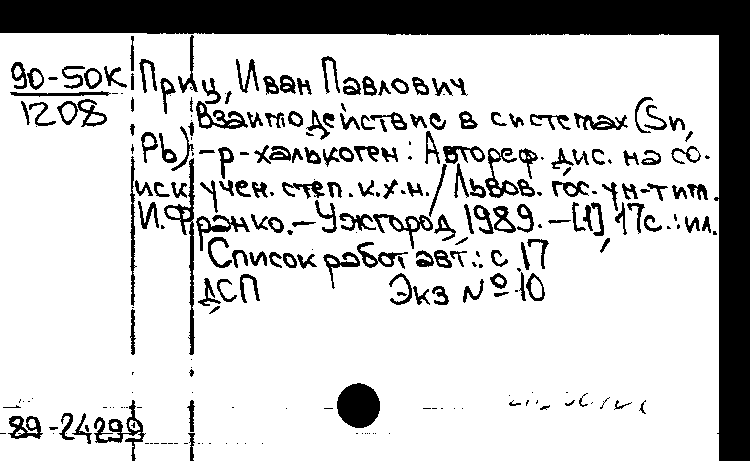 90-50к Приц, Иван Павлович
1208 Взаимодействие в системах (Sn,
Pb)-р-халькоген: Автореф. дис. на со-
иск. учен. степ. к.х.н. / Львов. гос. ун-т им.
И. Франко.-Ужгород, 1989.-[1], 17с.:ил.
Список работ авт.: с. 17
ДСП Экз № 10
89-24299